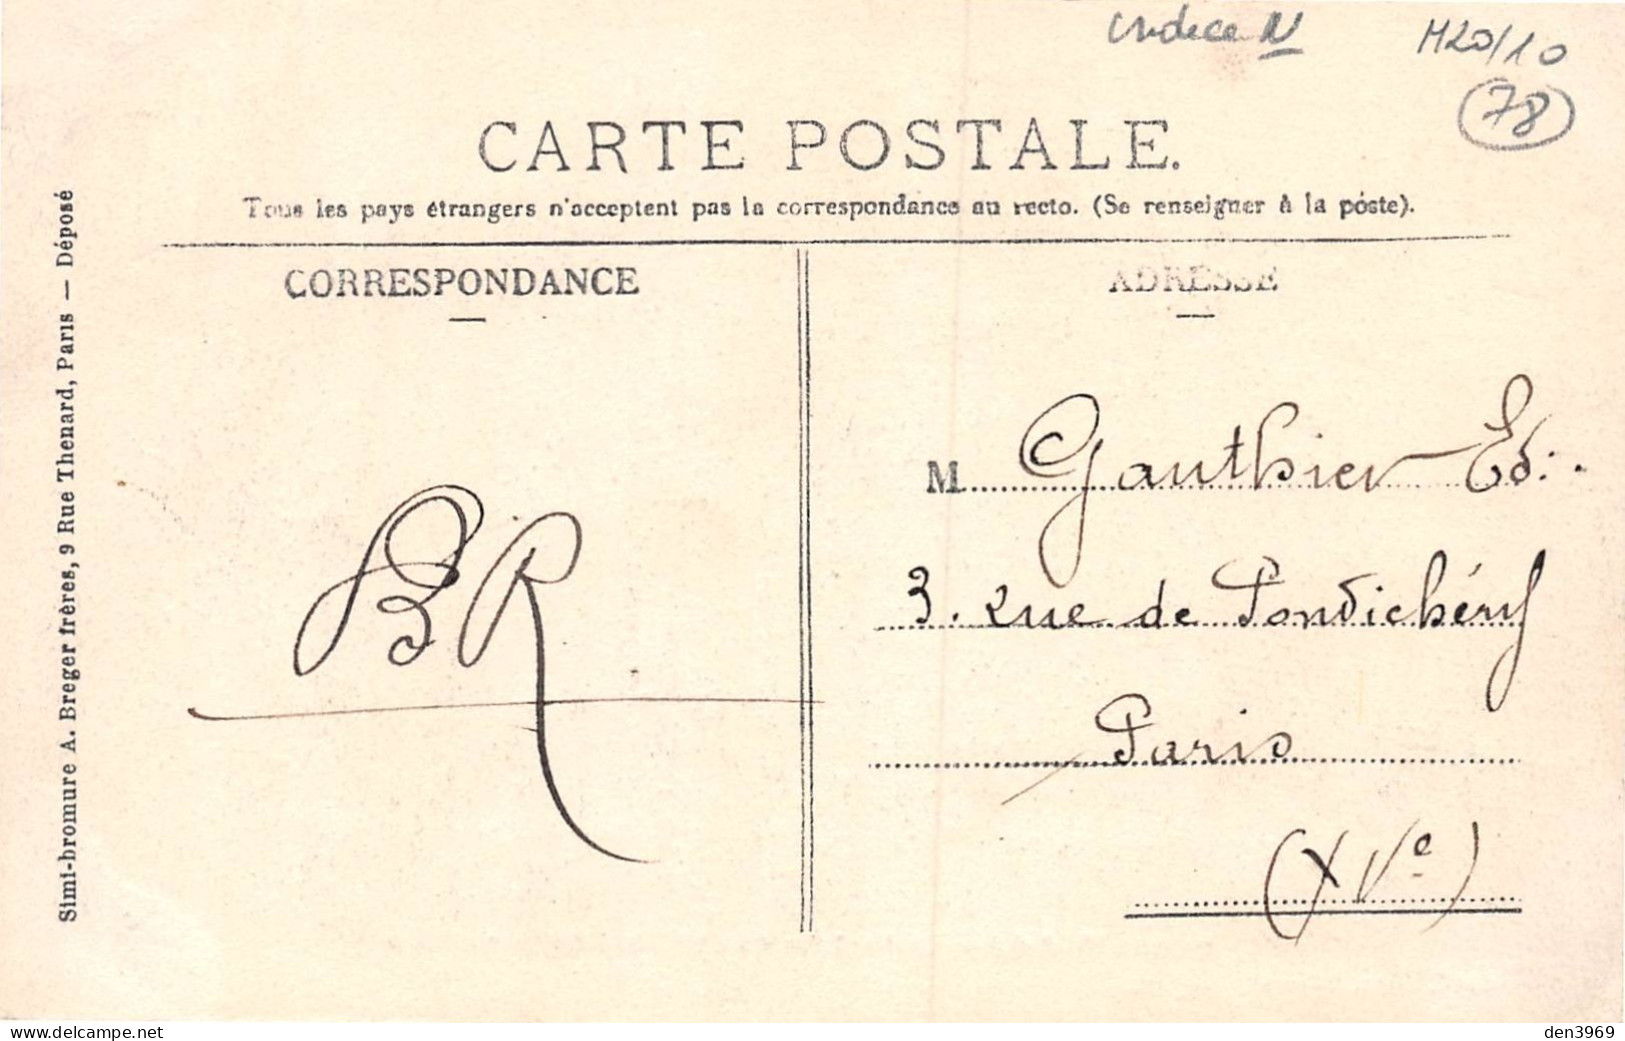 Indice N
M20/10
78
CARTE POSTALE.
Tous les pays étrangers n'acceptent pas la correspondance au recto. (Se renseigner à la poste).
CORRESPONDANCE
BR
ADRESSE
M Gauthier Ed.
3. rue de Pondichéry
Paris
(XVe)
Simi-bromure A. Breger frères, 9 Rue Thenard, Paris — Déposé
www.delcampe.net
den3969